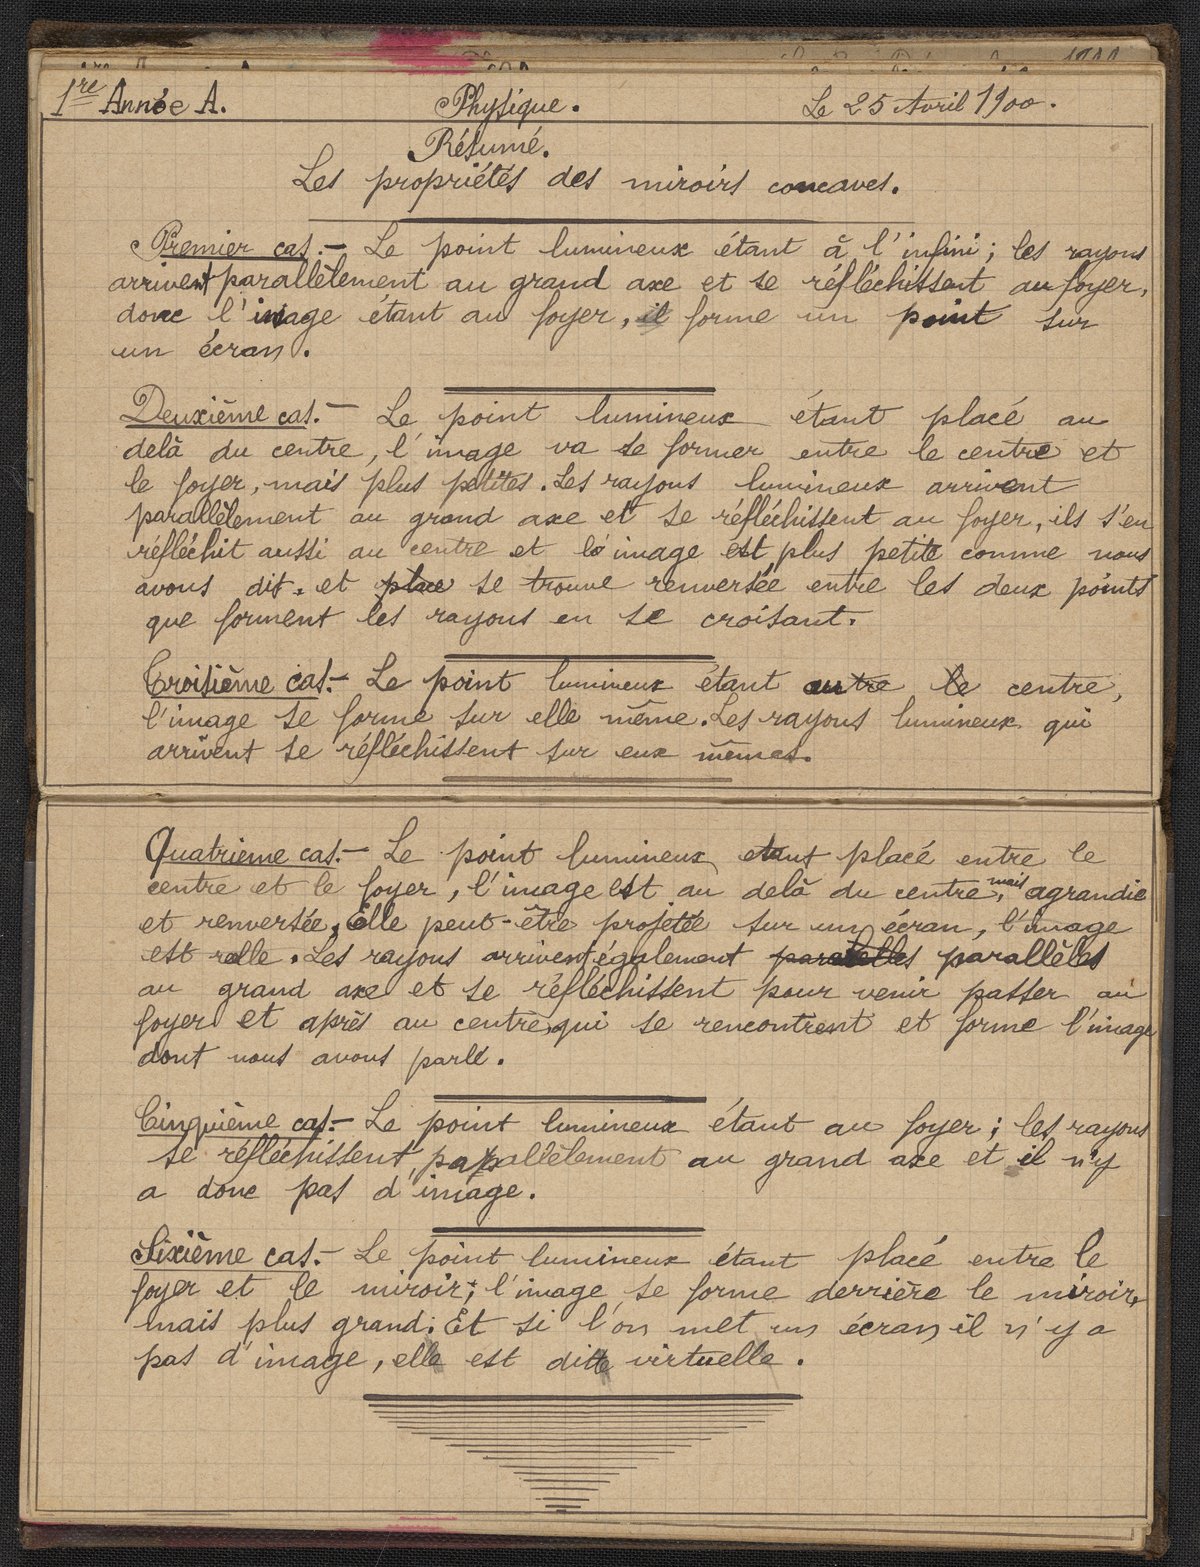 1re Année A. Physique. Le 25 Avril 1900.
Résumé.
Les propriétés des miroirs concaves.
Premier cas.- Le point lumineux étant à l'infini; les rayons
arrivent parallèlement au grand axe et se réfléchissent au foyer,
donc l'image étant au foyer, il forme un point sur
un écran.
Deuxième cas.- Le point lumineux étant placé au
delà du centre, l'image va se former entre le centre et
le foyer, mais plus petites. Les rayons lumineux arrivent
parallèlement au grand axe et se réfléchissent au foyer, ils s'en
réfléchit aussi au centre et l'image est plus petite comme nous
avons dit. et se trouve renversée entre les deux points
que forment les rayons en se croisant.
Troisième cas.- Le point lumineux étant centre,
l'image se forme sur elle même. Les rayons lumineux qui
arrivent se réfléchissent sur eux mêmes.
Quatrieme cas.- Le point lumineux étant placé entre le
centre et le foyer, l'image est au delà du centre, mais agrandie
et renversée. Elle peut-être projetée sur un écran, l'image
est relle. Les rayons arrivent également paralelles parallèles
au grand axe et se réfléchissent pour venir passer au
foyer et après au centre qui se rencontrent et forme l'image
dont nous avons parlé.
Cinquième cas.- Le point lumineux étant au foyer; les rayons
se réfléchissent, parallèlement au grand axe et il n'y
a donc pas d'image.
Sixième cas.- Le point lumineux étant placé entre le
foyer et le miroir; l'image se forme derrière le miroir,
mais plus grand. Et si l'on met un écran il n'y a
pas d'image, elle est ditte virtuelle.